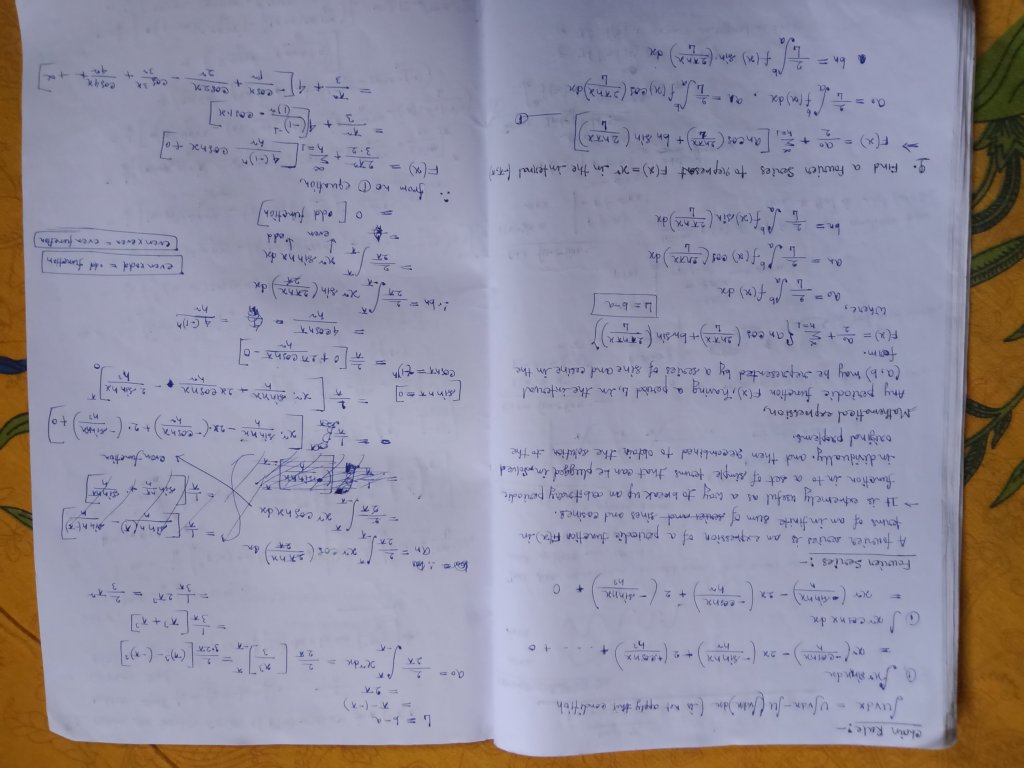 Chain Rule :-
∫uvdx = u∫vdx - ∫(u'∫vdx) dx (is not apply this condition
① ∫x² sinnx dx
= x² (-cosnx/n) - 2x (-sinnx/n²) + 2 (+cosnx/n³) + ..... + 0
① ∫x² cosnx dx
= x² (sinnx/n) - 2x (-cosnx/n²) + 2 (-sinnx/n³) + 0
Fourier Series :-
A fourier series is an expression of a periodic function F(x) in
terms of an infinite sum of sines and cosines.
→ It is extremely useful as a way to break up an arbitrary periodic
function in to a set of simple terms that can be plugged in solved
individually, and then recombined to obtain the solution to the
original problems.
Mathematical expression,
Any periodic function F(x), having a period L in the interval
(a,b) may be represented by a series of sine and cosine in the
form.
F(x) = a₀/2 + ∞Σn=1 { an cos (2πnx/L) + bn sin (2πnx/L) }
Where, L = b-a
a₀ = 2/L ∫ₐᵇ f(x) dx
an = 2/L ∫ₐᵇ f(x) cos (2πnx/L) dx
bn = 2/L ∫ₐᵇ f(x) sin (2πnx/L) dx
Find a Fourier Series to represent F(x) = x² in the interval (-π,π)
⇒ F(x) = a₀/2 + ∞Σn=1 [an cos (2πnx/L) + bn sin (2nπx/L)] ——①
a₀ = 2/L ∫ₐᵇ f(x) dx , an = 2/L ∫ₐᵇ f(x) cos (2πnx/L) dx
bn = 2/L ∫ₐᵇ f(x) sin (2πnx/L) dx
L = b-a
= π-(-π)
= 2π
a₀ = 2/2π ∫₋π^π x² dx = 2/2π [x³/3]₋π^π = 2/3·2π [(π)³-(-π)³]
= 1/3π [π³ + π³]
= 1/3π 2π³ = 2/3 π²
∴ an = 2/2π ∫₋π^π x² cos (2πnx/2π) dx
= 2/2π ∫₋π^π x² cosnx dx
even function
= 1/π [x² sinnx/n - 2x·(-cosnx/n²) + 2·(-sinnx/n³) + 0]
= 2/π [x² sinnx/n + 2x cosnx/n² - 2 sinnx/n³]₀^π
[sin nπ = 0
cosnπ = (-1)ⁿ
= 2/π [0 + 2π cosnπ/n² - 0]
= 4cosnπ/n² = 4(-1)ⁿ/n²
∴ bn = 2/2π ∫₋π^π x² sin (2πnx/2π) dx
= 2/2π ∫₋π^π x² sinnx dx
even odd
= 0 [odd function]
even x odd = odd function
even x even = even function
∴ from ① equation
F(x) = 2π²/3·2 + ∞Σn=1 [4(-1)ⁿ/n² cosnx + 0]